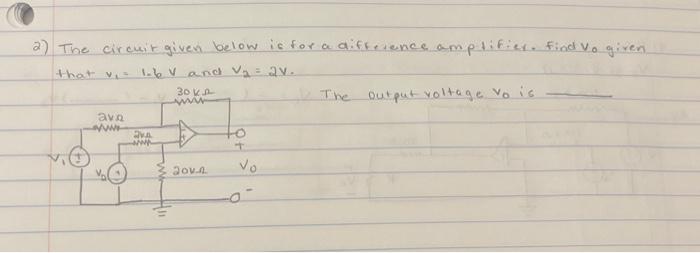 2) The circuit given below is for a difference amplifier. Find Vo given
that v₁ = 1.6 V and V₂ = 2V.
The output voltage Vo is ____
30 kΩ
2kΩ
2kΩ
V₁
V₂
20kΩ
+
Vo
-